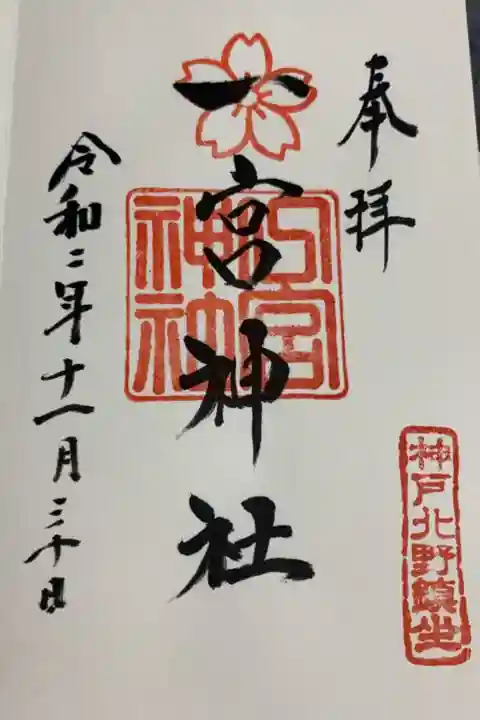 奉拝
神戸北野鎮坐
一宮神社
一宮神社
令和二年十一月三十日